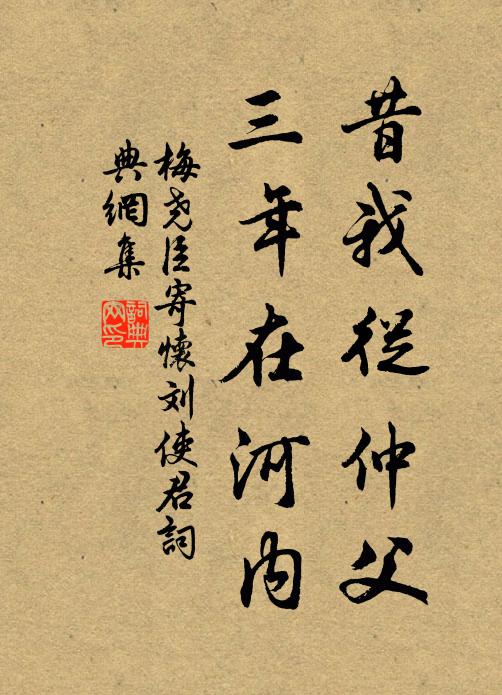 昔我從仲父
三年在河内
梅尧臣寄懷刘使君詞
典網集
詞典
网印